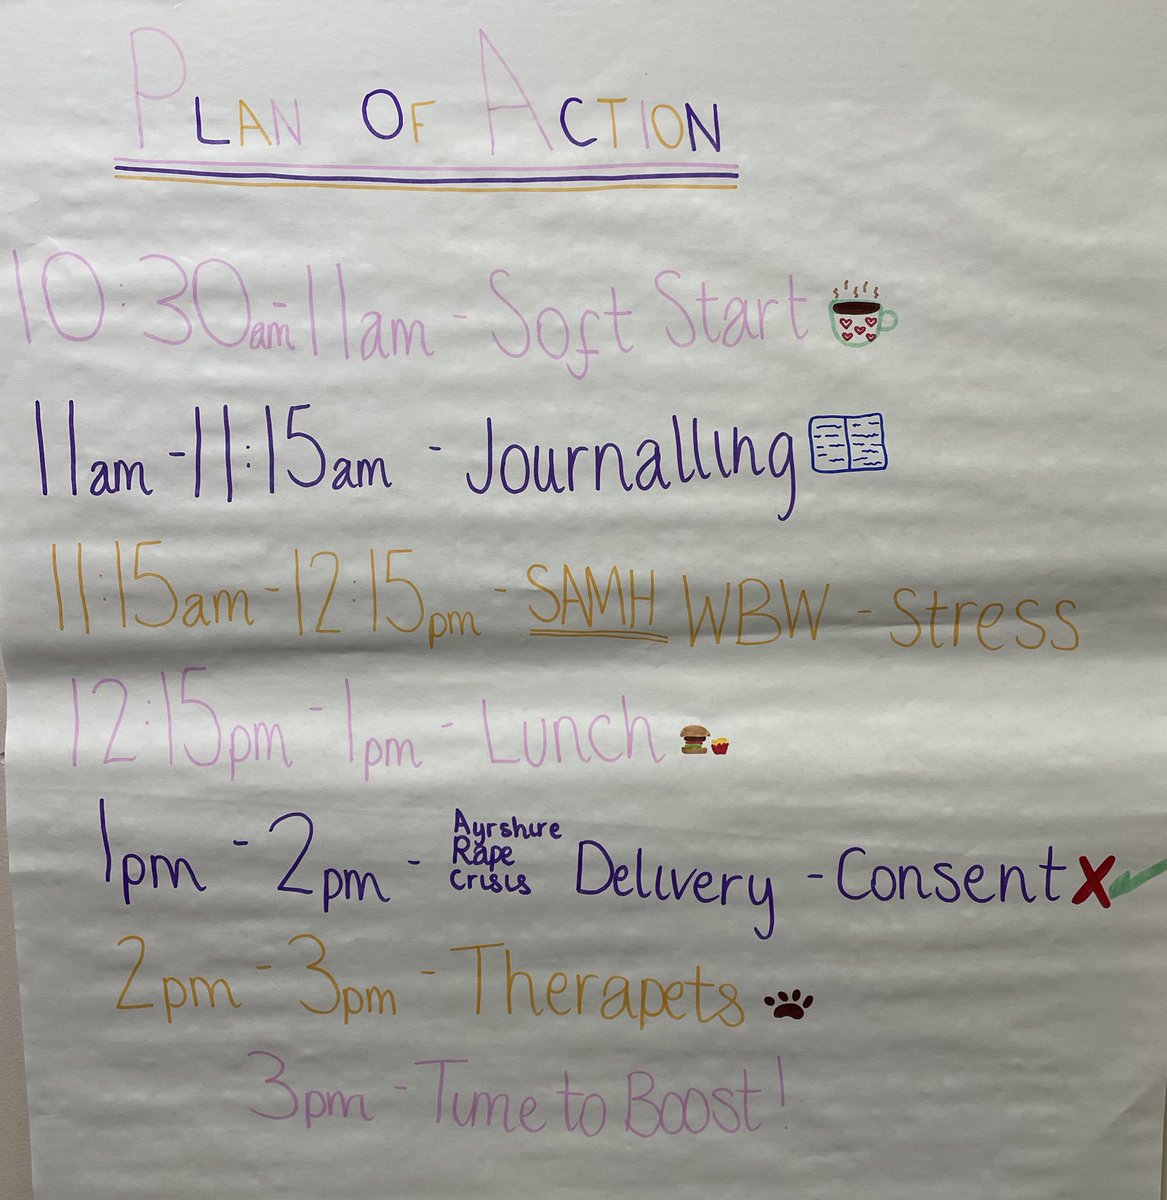 PLAN OF ACTION
10:30am-11am - Soft Start
11am-11:15am - Journalling
11:15am-12:15pm - SAMH WBW - Stress
12:15pm - 1pm - Lunch
1pm - 2pm - Ayrshire Rape Crisis Delivery - Consent
2pm - 3pm - Therapets
3pm - Time to Boost!